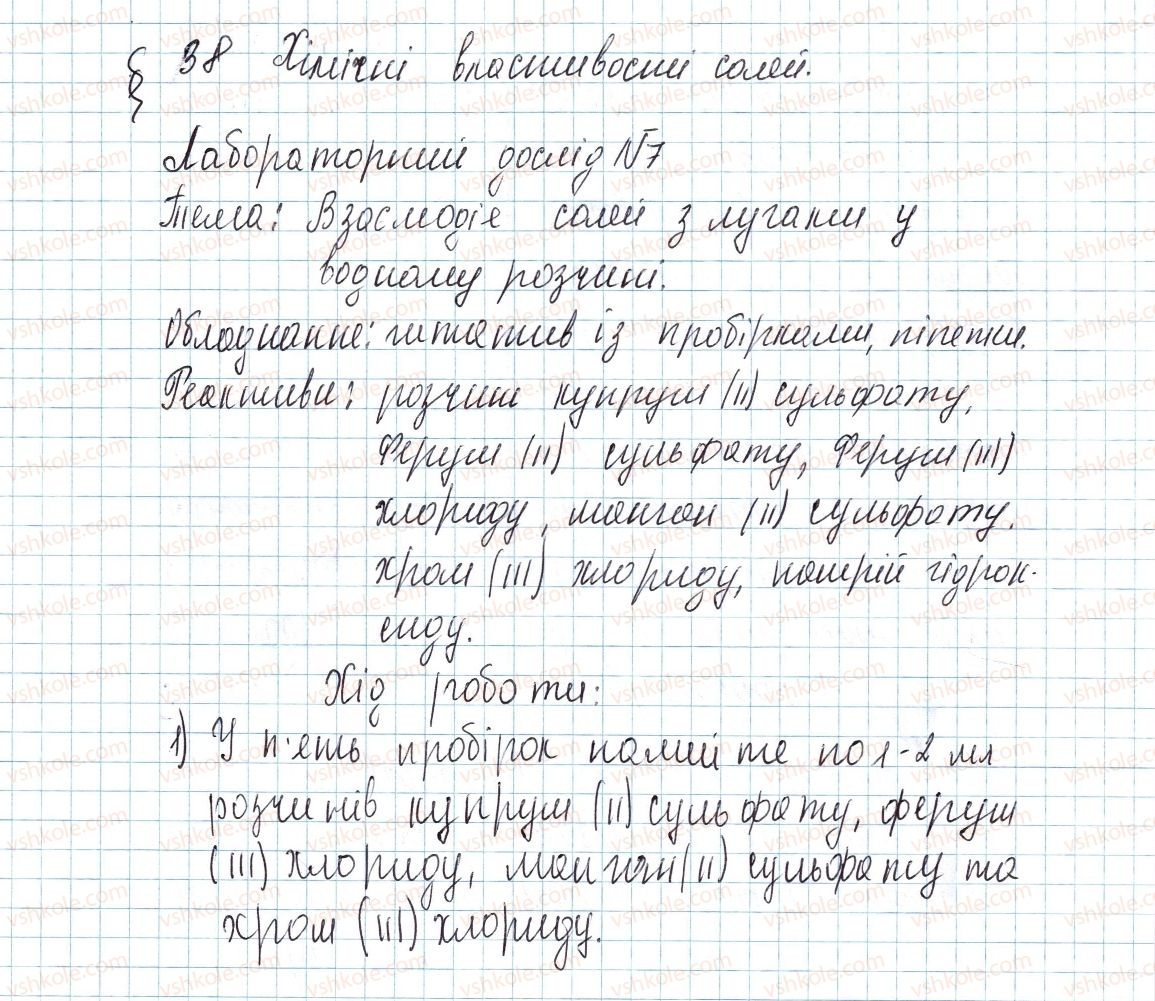 § 38 Хімічні властивості солей.
Лабораторний дослід №7
Тема: Взаємодія солей з лугами у
водному розчині.
Обладнання: штатив із пробірками, піпетки.
Реактиви: розчини купрум (II) сульфату,
Ферум (II) сульфату, Ферум (III)
хлориду, манган (II) сульфату.
хром (III) хлориду, натрій гідрок-
сиду.
Хід роботи:
1) У п'ять пробірок налийте по 1-2 мл
розчинів купрум (II) сульфату, ферум
(III) хлориду, манган (II) сульфату та
хром (III) хлориду.